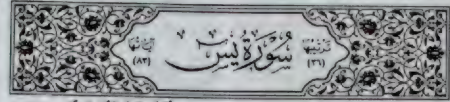 ترتيبها (٣٦) سُورَةُ يسٓ آياتها (٨٣)